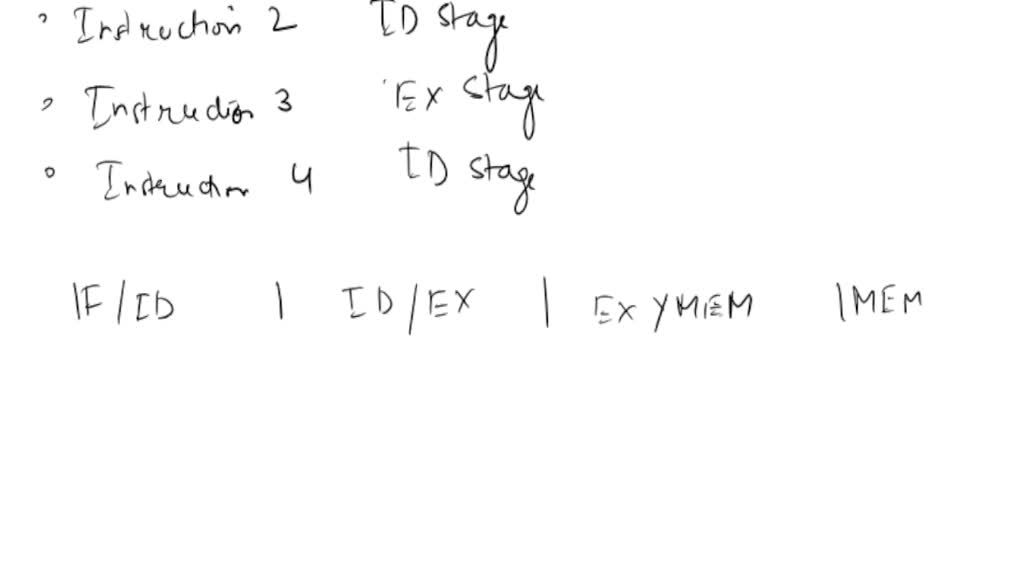 Instruction 2 ID stage
Instruction 3 EX stage
Instruction 4 ID stage
IF/ID | ID/EX | EX/MEM | MEM